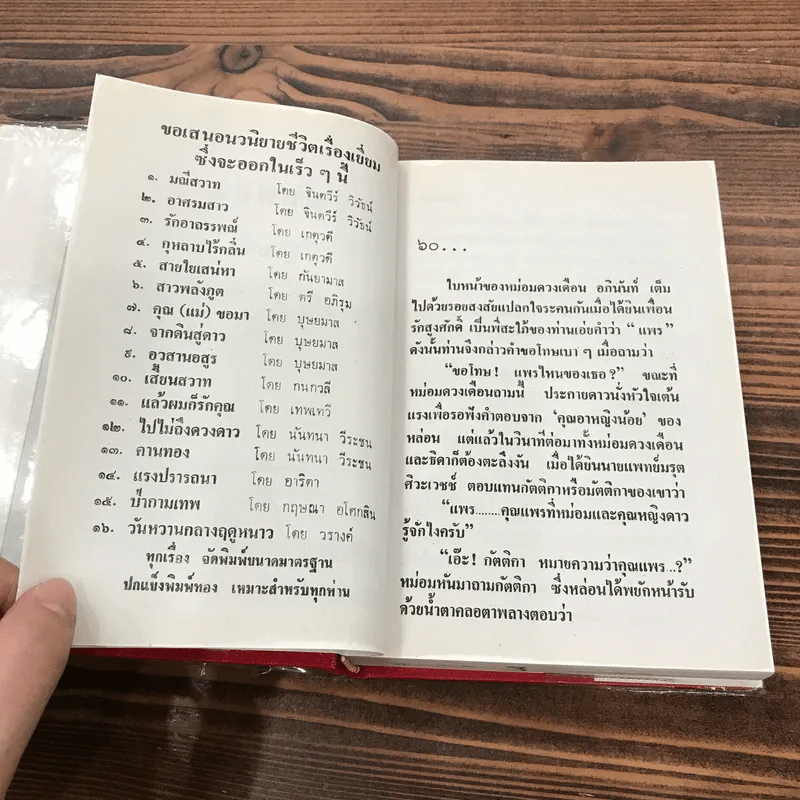 ขอเสนอนวนิยายชีวิตเรื่องเยี่ยม
ซึ่งจะออกในเร็ว ๆ นี้
๑. มณีสวาท โดย จินตวีร์ วิวัธน์
๒. อาศรมสาว โดย จินตวีร์ วิวัธน์
๓. รักอาลรรพณ์ โดย เกตุวดี
๔. กุหลาบไร้กลิ่น โดย เกตุวดี
๕. สายใยเสน่หา โดย กันยามาส
๖. สาวพลังภูต โดย ตรี อภิรุม
๗. คุณ (แม่) ขอมา โดย บุษยมาส
๘. จากดินสู่ดาว โดย บุษยมาส
๙. อวสานอสูร โดย บุษยมาส
๑๐. เสี้ยนสวาท โดย กนกวลี
๑๑. แล้วผมก็รักคุณ โดย เทพเทวี
๑๒. ไปไม่ถึงดวงดาว โดย นันทนา วีระชน
๑๓. คานทอง โดย นันทนา วีระชน
๑๔. แรงปรารถนา โดย อาริตา
๑๕. ป่ากามเทพ โดย กฤษณา อโศกสิน
๑๖. วันหวานกลางฤดูหนาว โดย วรางค์
ทุกเรื่อง จัดพิมพ์ขนาดมาตรฐาน
ปกแข็งพิมพ์ทอง เหมาะสำหรับทุกท่าน
๖๐...
ใบหน้าของหม่อมดวงเดือน อภินันท์ เต็ม
ไปด้วยรอยสงสัยแปลกใจระคนกันเมื่อได้ยินเพื่อน
รักสูงศักดิ์ เป็นพี่สะใภ้ของท่านเอ่ยคำว่า “ แพร ”
ดังนั้นท่านจึงกล่าวคำขอโทษเบา ๆ เมื่อถามว่า
“ขอโทษ! แพรไหนของเธอ ?” ขณะที่
หม่อมดวงเดือนถามนี้ ประกายดาวนั่งหัวใจเต้น
แรงเพื่อรอฟังคำตอบจาก ‘คุณอาหญิงน้อย’ ของ
หล่อน แต่แล้วในวินาทีต่อมาทั้งหม่อมดวงเดือน
และธิดาก็ต้องตะลึงงัน เมื่อได้ยินนายแพทย์มรุต
ศิวะเวชช์ ตอบแทนกัตติกาหรือมัตติกาของเขาว่า
“แพร........คุณแพรที่หม่อมและคุณหญิงดาว
รู้จักไงครับ”
“เอ๊ะ! กัตติกา หมายความว่าคุณแพร...?”
หม่อมหันมาถามกัตติกา ซึ่งหล่อนได้พยักหน้ารับ
ด้วยน้ำตาคลอตาพลางตอบว่า